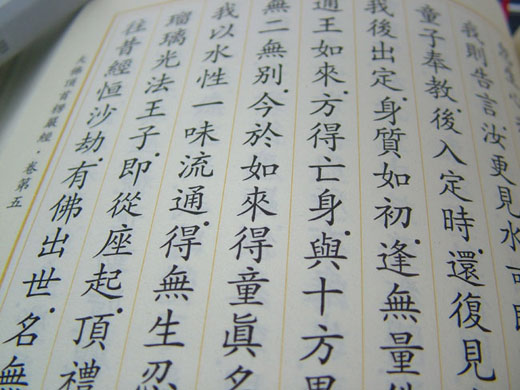 我則告言.汝更見水可即
童子奉教.後入定時.還復見
我後出定.身質如初.逢無量
通王如來.方得亡身.與十方界
無二無別.今於如來得童眞名
我以水性一味流通.得無生忍
瑠璃光法王子.即從座起.頂禮
往昔經恒沙劫.有佛出世.名無
大佛頂首楞嚴經．卷第五